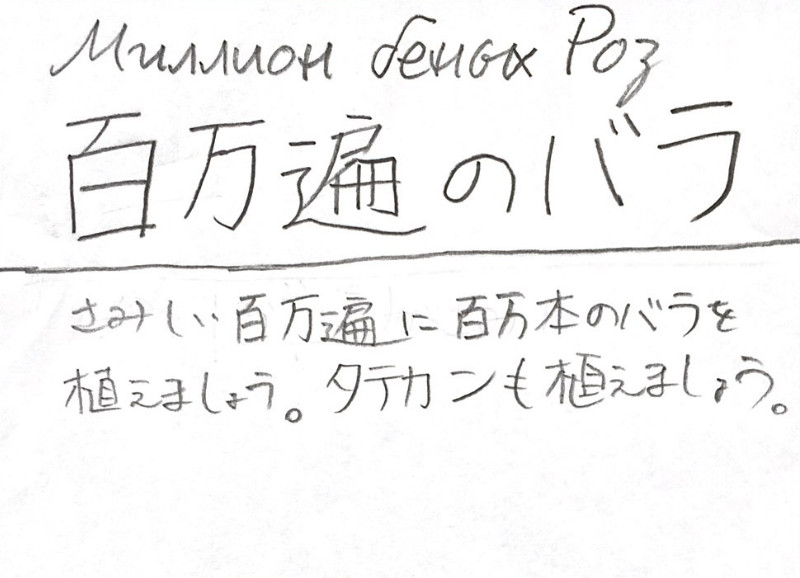 Миллион беных Роз
百万遍のバラ
さみしい百万遍に百万本のバラを
植えましょう。タテカンも植えましょう。